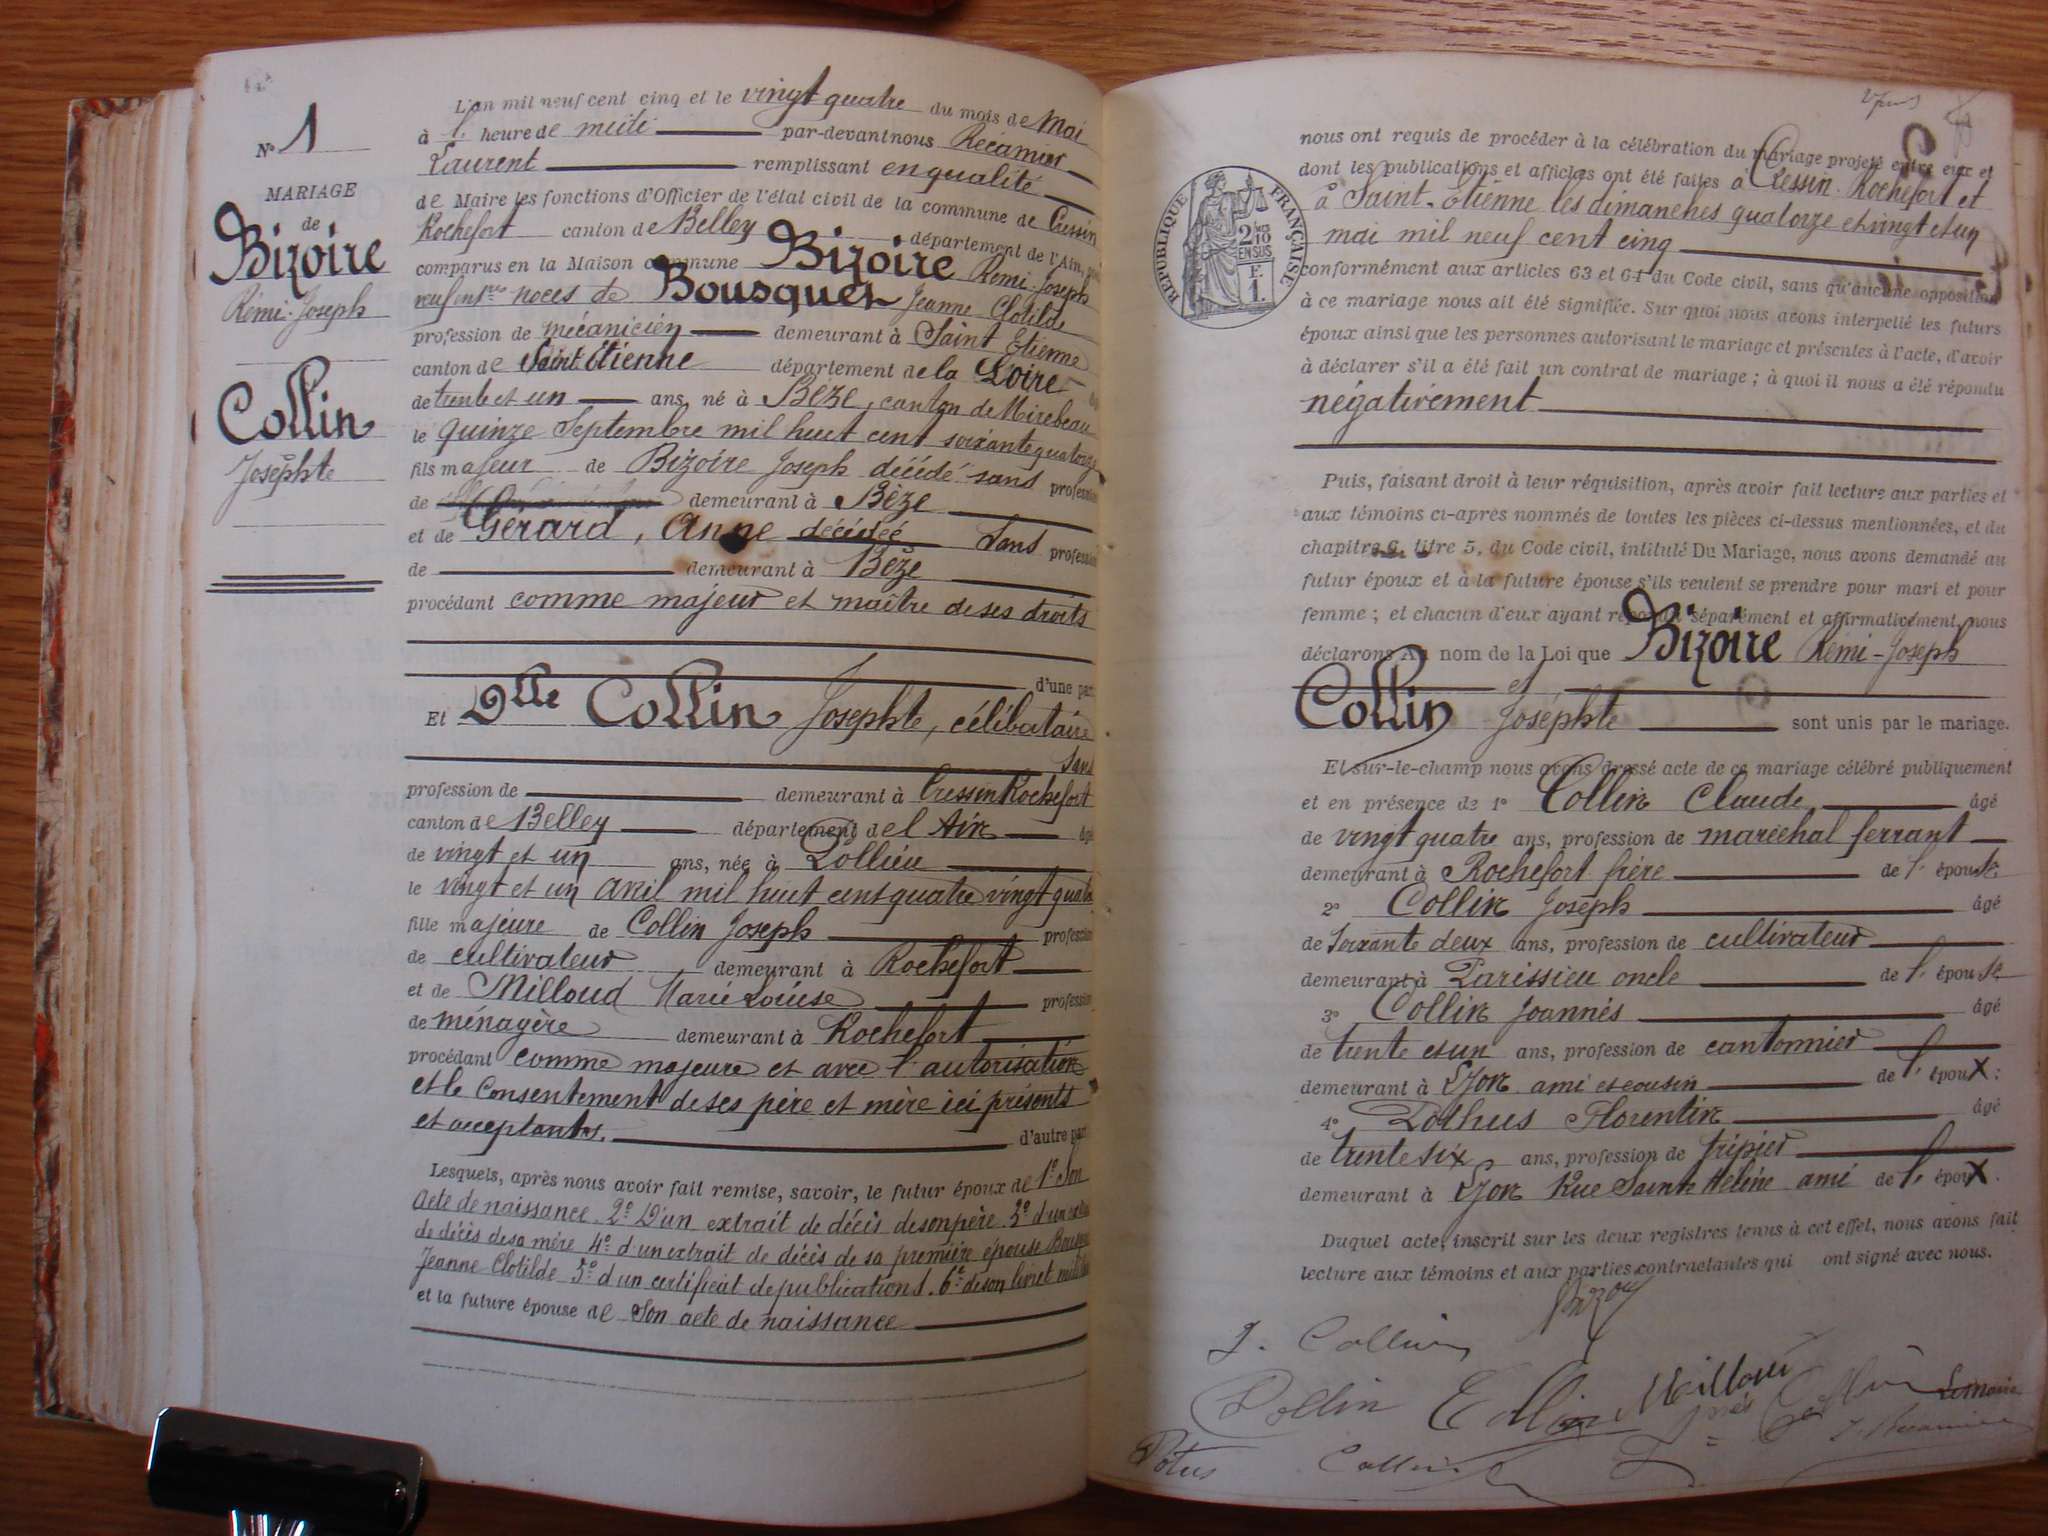 N° 1
MARIAGE
de
Bizoire
Rémi-Joseph
Collin
Josephte
L'an mil neuf cent cinq et le vingt quatre du mois de Mai
à l' heure de midi par-devant nous Récamier
Laurent remplissant en qualité
de Maire les fonctions d'Officier de l'état civil de la commune de Cressin
Rochefort canton de Belley département de l'Ain,
comparus en la Maison commune Bizoire Remi-Joseph
veuf en 1res noces de Bousquet Jeanne Clotilde
profession de mécanicien demeurant à Saint Etienne
canton de Saint Étienne département de la Loire
de trente et un ans, né à Bèze, canton de Mirebeau
le quinze Septembre mil huit cent soixante quatorze
fils majeur de Bizoire Joseph décédé sans profession
de demeurant à Bèze
et de Gérard, Anne décédée Sans profession
de demeurant à Bèze
procédant comme majeur et maître de ses droits
d'une part
Et Dlle Collin Josephte, célibataire
Sans
profession de demeurant à Cressin Rochefort
canton de Belley département de l'Ain âgé
de vingt et un ans, née à Lollieu
le vingt et un avril mil huit cent quatre vingt quatre
fille majeure de Collin Joseph profession
de cultivateur demeurant à Rochefort
et de Milloud Marie Louise profession
de ménagère demeurant à Rochefort
procédant comme majeure et avec l'autorisation
et le consentement de ses père et mère ici présents
et acceptants. d'autre part
Lesquels, après nous avoir fait remise, savoir, le futur époux de 1° Son
acte de naissance 2° D'un extrait de décès de son père 3° d'un extrait
de décès de sa mère 4° d'un extrait de décès de sa première épouse Bousquet
Jeanne Clotilde 5° d'un certificat de publications. 6° de son livret militaire
et la future épouse de Son acte de naissance
RÉPUBLIQUE FRANÇAISE
2/10
EN SUS
F.
1.
nous ont requis de procéder à la célébration du mariage projeté entre eux et
dont les publications et affiches ont été faites à Cressin-Rochefort et
à Saint-Etienne les dimanches quatorze et vingt et un
mai mil neuf cent cinq
conformément aux articles 63 et 64 du Code civil, sans qu'aucune opposition
à ce mariage nous ait été signifiée. Sur quoi nous avons interpellé les futurs
époux ainsi que les personnes autorisant le mariage et présentes à l'acte, d'avoir
à déclarer s'il a été fait un contrat de mariage ; à quoi il nous a été répondu
négativement
Puis, faisant droit à leur réquisition, après avoir fait lecture aux parties et
aux témoins ci-après nommés de toutes les pièces ci-dessus mentionnées, et du
chapitre 6, titre 5, du Code civil, intitulé Du Mariage, nous avons demandé au
futur époux et à la future épouse s'ils veulent se prendre pour mari et pour
femme ; et chacun d'eux ayant répondu séparément et affirmativement, nous
déclarons Au nom de la Loi que Bizoire Rémi-Joseph
et
Collin Josephte sont unis par le mariage.
Et sur-le-champ nous avons dressé acte de ce mariage célébré publiquement
et en présence de 1° Collin Claude, âgé
de vingt quatre ans, profession de maréchal ferrant
demeurant à Rochefort frère de l'épouse
2° Collin Joseph âgé
de soixante deux ans, profession de cultivateur
demeurant à Parissieu oncle de l'épouse
3° Collin Joannès âgé
de trente et un ans, profession de cantonnier
demeurant à Lyon ami et cousin de l'époux :
4° Pothus Florentin âgé
de trente six ans, profession de tripier
demeurant à Lyon Rue Sainte Hélène ami de l'époux.
Duquel acte, inscrit sur les deux registres tenus à cet effet, nous avons fait
lecture aux témoins et aux parties contractantes qui ont signé avec nous.
J. Collin
Collin Collin Milloud Collin Le Maire
Potus Collin L. Récamier